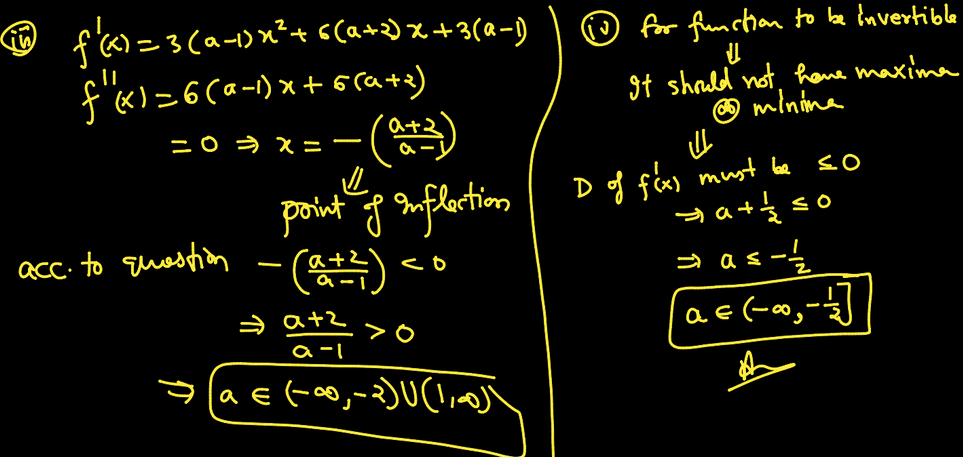 (iii) f'(x) = 3(a-1)x² + 6(a+2)x + 3(a-1)
f''(x) = 6(a-1)x + 6(a+2)
= 0 ⇒ x = -((a+2)/(a-1))
⇓
point of inflection
acc. to question -((a+2)/(a-1)) < 0
⇒ (a+2)/(a-1) > 0
⇒ a ∈ (-∞, -2) ∪ (1, ∞)
(iv) for function to be invertible
⇓
It should not have maxima
or minima
⇓
D of f'(x) must be ≤ 0
⇒ a + 1/2 ≤ 0
⇒ a ≤ -1/2
a ∈ (-∞, -1/2]